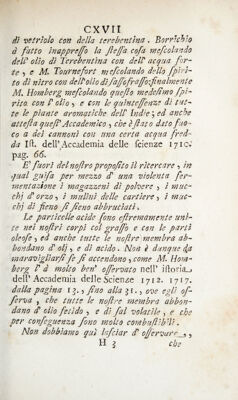 CXVII
di vetriolo con della terebentina. Borrichio
à fatto inappresso la stessa cosa mescolando
dell' olio di Terebentina con dell' acqua for-
te, e M. Tournefort mescolando dello spiri-
to di nitro con dell' olio di sassofrasso: finalmente
M. Homberg mescolando questo medesimo spi-
rito con l' olio, e con le quintessenze di tut-
te le piante aromatiche dell' Indie; ed anche
attesta quest' Accademico, che è stato dato fuo-
co a dei cannoni con una certa acqua fred-
da Ist. dell' Accademia delle scienze 1710.
pag. 66.
E' fuori del nostro proposito il ricercare, in
qual guisa per mezzo d' una violenta fer-
mentazione i magazzeni di polvere, i muc-
chj d' orzo, i mulini delle cartiere, i muc-
chj di fieno si sieno abbruciati.
Le particelle acide sono estremamente uni-
te nei nostri corpi col grasso e con le parti
oleose, ed anche tutte le nostre membra ab-
bondano d' olj, e di acido. Non è dunque da
maravigliarsi se si accendono, come M. Hom-
berg l' à molto ben' osservato nell' istoria
dell' Accademia delle Scienze 1712. 1717.
dalla pagina 13., fino alla 31., ove egli os-
serva, che tutte le nostre membra abbon-
dano d' olio fetido, e di sal volatile, e che
per conseguenza sono molto combustibili.
Non dobbiamo quì lasciar d' osservare,
H 3 che